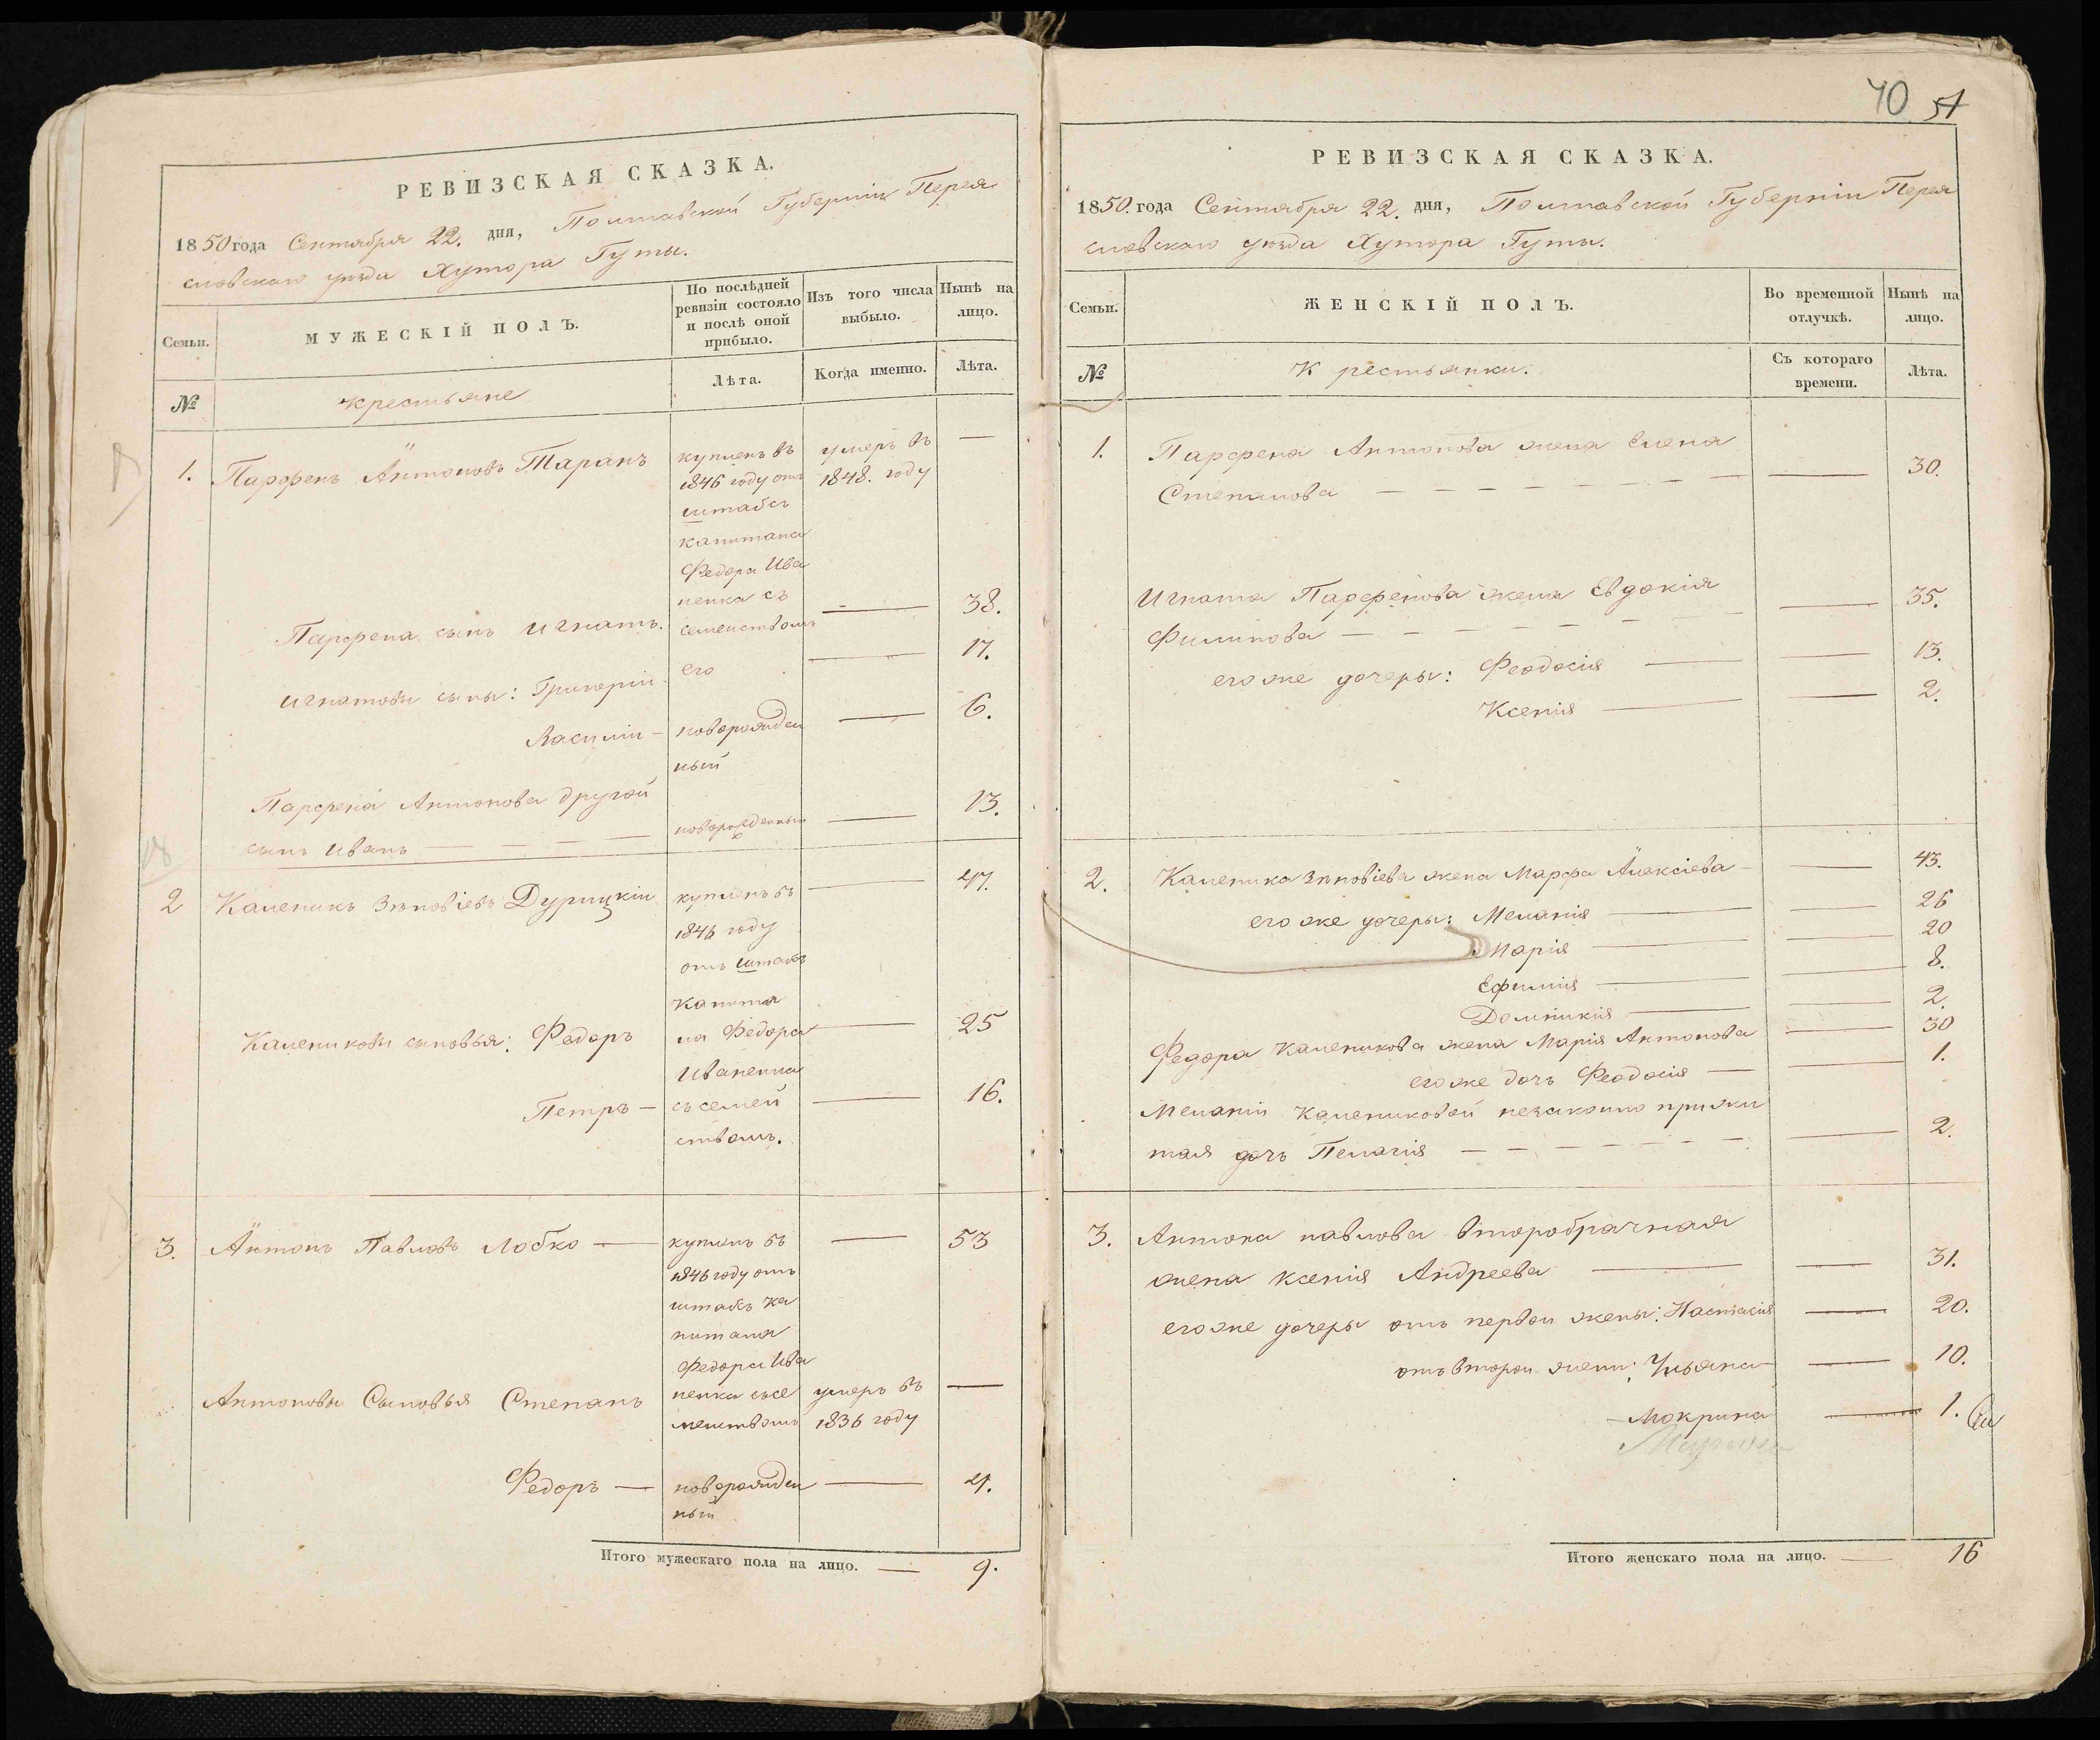 РЕВИЗСКАЯ СКАЗКА.
1850 года Сентября 22. дня, Полтавской Губерніи Перея
словскаго уѣзда Хутора Гуты.
Семьи.
МУЖЕСКІЙ ПОЛЪ.
По послѣдней
ревизіи состояло
и послѣ оной
прибыло.
Изъ того числа
выбыло.
Нынѣ на
лицо.
№
Крестьяне
Лѣта.
Когда именно.
Лѣта.
1. Парфенъ Антоновъ Таранъ
купленъ въ
1846 году отъ
штабсъ
капитана
Федора Ива
ненка съ
семействомъ
его
умеръ въ
1848. году
—
Парфена сынъ Игнатъ. — 38.
Игнатовы сыны: Григорій — 17.
Василій — новорожден
ный — 6.
Парфена Антонова другой
сынъ Иванъ — новорожденный — 13.
2 Каленикъ Зѣновіевъ Дурицкій
купленъ въ
1846 году
отъ штабсъ
капита
на Федора
Иваненка
съ семей
ствомъ.
— 47.
Калениковы сыновья: Федоръ — 25
Петръ — 16.
3. Антонъ Павловъ Лобко —
купленъ въ
1846 году отъ
штабсъ ка
питана
Федора Ива
ненка съ се
мействомъ
— 53
Антоновы Сыновья Степанъ
умеръ въ
1836 году
—
Федоръ — новорожден
ный — 4.
Итого мужескаго пола на лицо. — 9.
40 51
РЕВИЗСКАЯ СКАЗКА.
1850. года Сентября 22. дня, Полтавской Губерніи Перея
словскаго уѣзда Хутора Гуты.
Семьи.
ЖЕНСКІЙ ПОЛЪ.
Во временной
отлучкѣ.
Нынѣ на
лицо.
№
Крестьянки.
Съ котораго
времени.
Лѣта.
1. Парфена Антонова жена Елена
Степанова — — 30.
Игната Парфенова жена Евдокія
Филипова — — 35.
его же дочеры: Феодосія — — 13.
Ксенія — — 2.
2. Каленика Зѣновіева жена Марфа Алексіева — — 43.
его же дочеры: Меланія — — 26
Марія — — 20
Ефимія — — 8.
Домникія — — 2.
Федора Каленикова жена Марія Антонова — 30
его же дочь Феодосія — — 1.
Меланіи Калениковой незаконно прижи
тая дочь Пелагія — — 2.
3. Антона Павлова второбрачная
жена Ксенія Андреева — — 31.
его же дочеры отъ первой жены: Настасія — 20.
отъ второй жены: Ульяна — 10.
— Мокрина — 1.
Итого женскаго пола на лицо. — 16